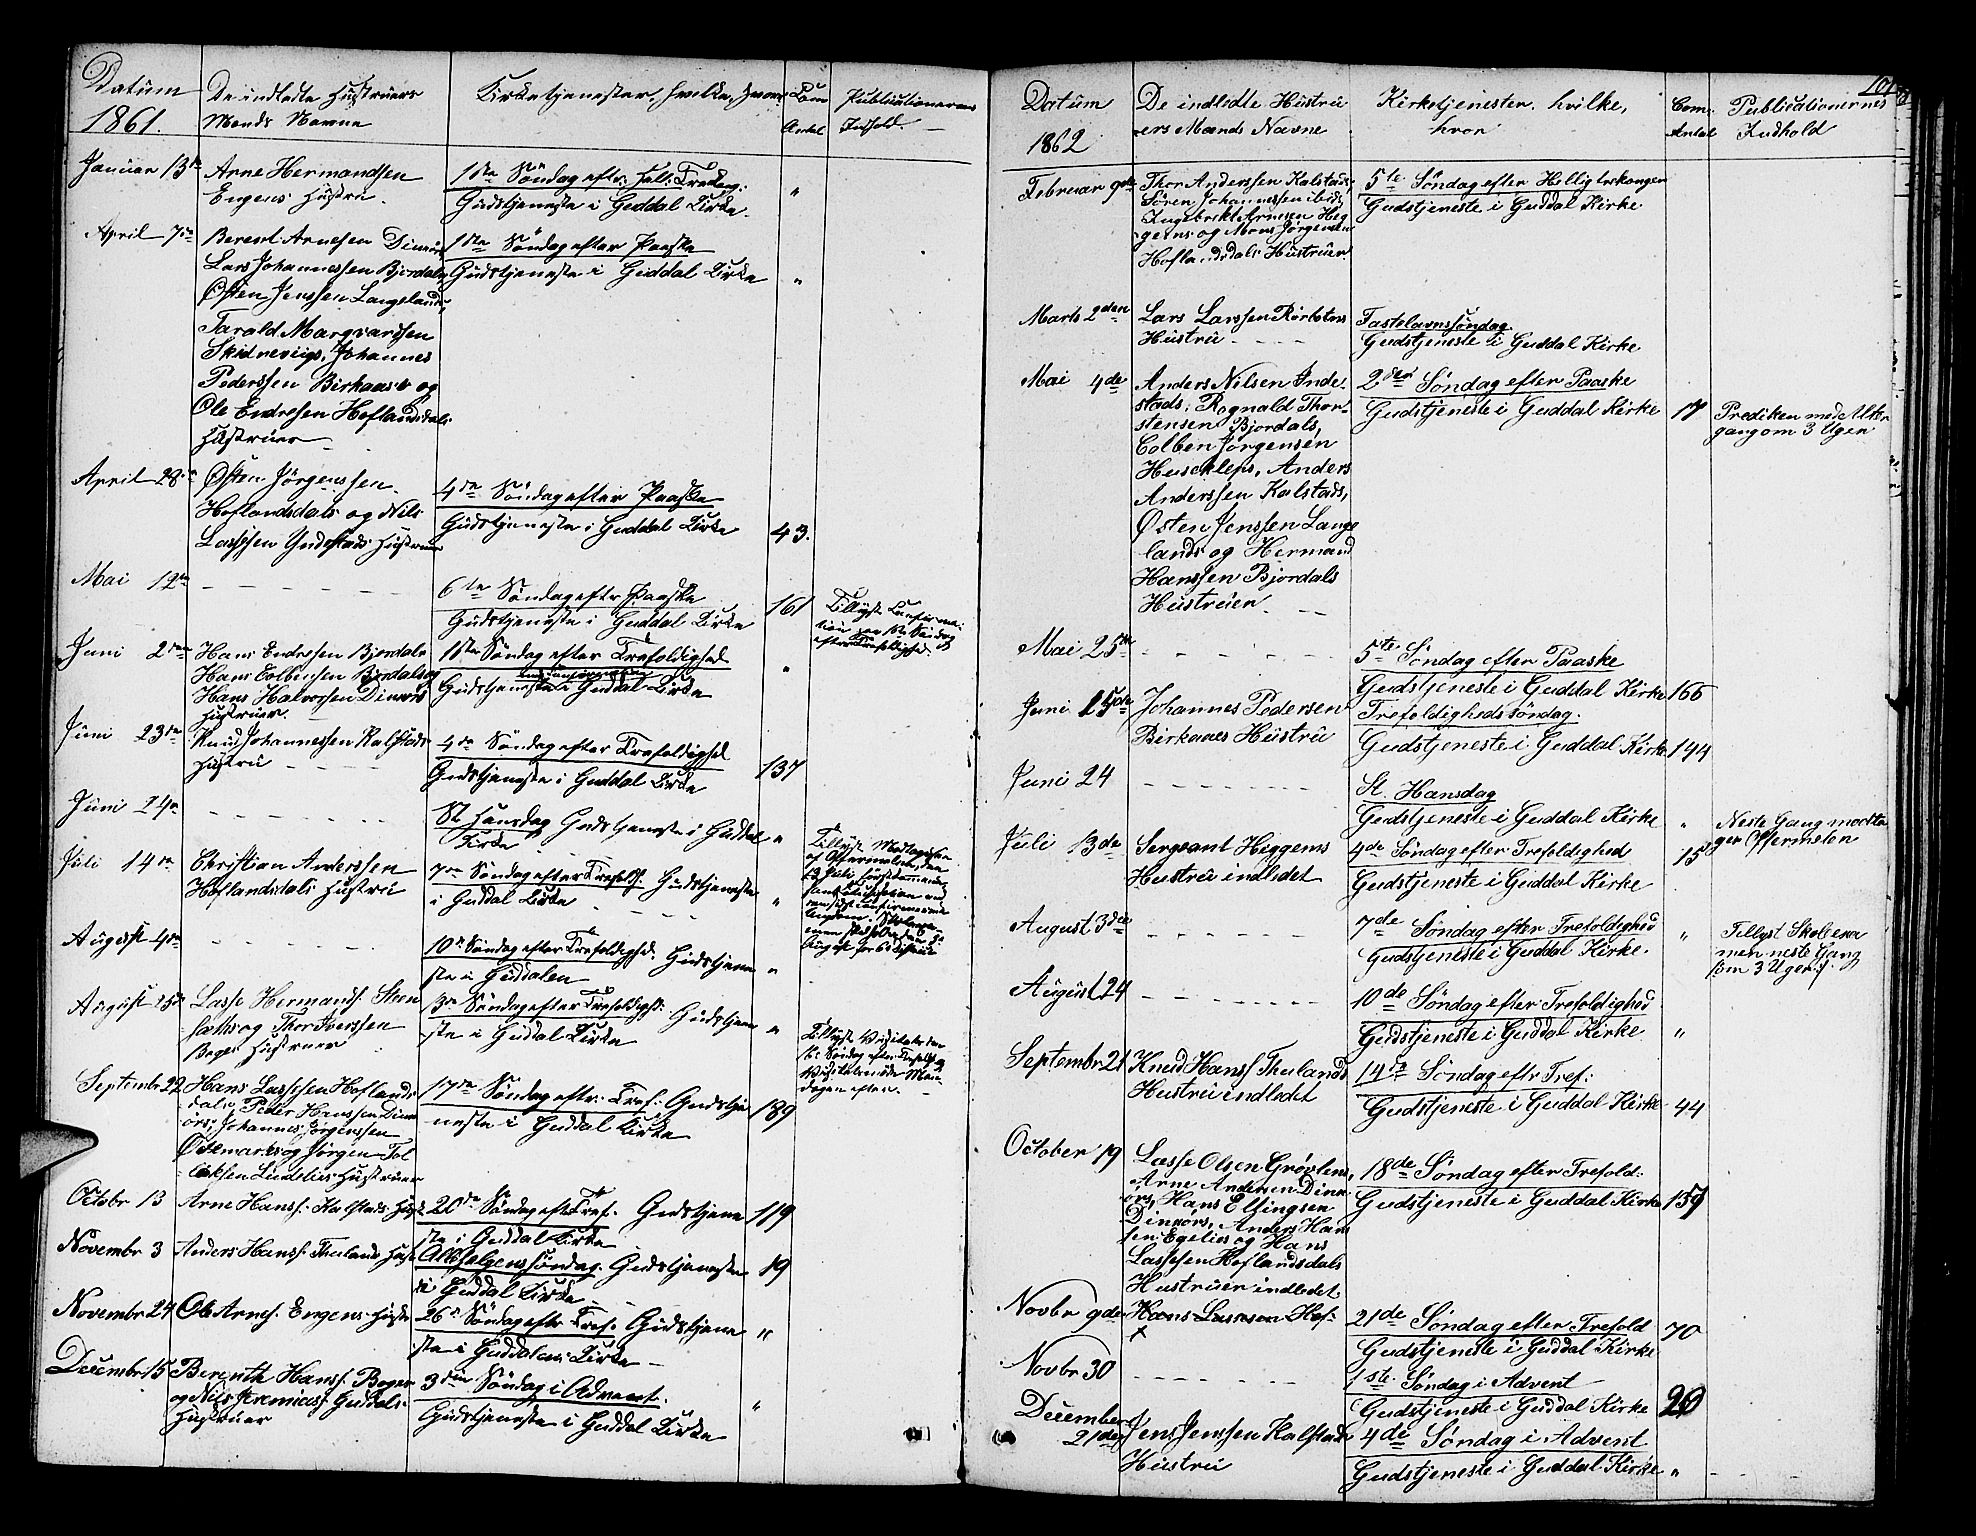 Datum
1861.
De indledte Hustruers
Mænds Navne
Kirketjenester, hvilke, hvor
Com
Antal
Publicationernes
Indhold.
Januar 13de
Arne Hermandsen
Engens Hustru.
1ste Söndag eftr: Hell: Trekong:
Gudstjeneste i Guddal Kirke.
"
April 7de
Berent Arnesen Dinnørs
Lars Johannessen Bjordals,
Østen Jenssen Langelands,
Tarald Marqvardsen
Skidnevigs, Johannes
Pederssen Birkaas's og
Ole Endresen Hoflandsdals
Hustruer
1ste Söndag efter Paaske
Gudstjeneste i Guddal Kirke
"
April 28de
Østen Jørgenssen
Hoflandsdals og Nils
Lassesen Yndestads Hustruer
4de Söndag efter Paaske
Gudstjeneste i Guddal Kirke
43.
Mai 12te
6te Söndag eftr Paaske
Gudstjeneste i Guddal Kirke
161
Tillyst Confirma-
tion paa 1ste Søndag
efter Trefoldighed.
Juni 2den
Hans Endresen Bjordals
Hans Colbensen Bjordals og
Hans Halvorsen Dinnørs
Hustruer.
1ste Söndag efter Trefoldighed
Gudstjeneste i Guddal Kirke
"
Juni 23de
Knud Johannessen Kalstads
Hustru
4de Söndag efter Trefoldighed
Gudstjeneste i Guddal Kirke
137
Juni 24de
St. Hansdag Gudstjeneste i Guddal
Kirke
"
Juli 14de
Christian Anderssen
Hoflandsdals Hustru
7de Söndag efter Trefold: Gudstjeneste
i Guddal Kirke
"
August 4de
10de Söndag efter Trefoldighd: Gudstjene
ste i Guddalen
"
August 25de
Lasse Hermands: Steen
sæths og Thor Iverssen
Bøges Hustruer
13de Söndag efter Trefoldighd: Gudstjene
ste i Guddal Kirke
"
Septembr 22
Hans Lassesen Hoflands
dals, Peder Hanssen Dinn
ørs, Johannes Jørgenssen
Ødemarks og Jørgen Tol
leksen Lindelies Hustruer
17de Söndag eftr: Tref: Gudstje
neste i Guddal Kirke
189
Octobr 13
Arne Hanss: Kalstads Hust
20de Söndag eft Tref: Gudstjene
ste i Guddal Kirke
119
Novembr 3
Anders Hanss: Theilands Hust
Allehelgenssöndag. Gudstjeneste
i Guddal Kirke
19
Novembr 24
Ole Arnes: Engens Hustr
26de Söndag eftr Tref: Gudstjene
ste i Guddalens Kirke
"
Decembr 15
Berenth Hanss: Bøges
og Nils Jeremiass: Guddals
Hustruer
3die Söndag i Advent.
Gudstjeneste i Guddal Kirke
"
101
Datum
1862
De indledte Hustru
ers Mænds Navne
Kirketjenesten, hvilke,
hvor
Com.
Antal
Publicationernes
Indhold
Februar 9de
Thor Anderssen Kalstads,
Søren Johannessen ibid,
Ingebrikt Arnesen Heg
gerns og Mons Jørgensen
Hoflandsdals Hustruer
5te Søndag efter Helligtrekonger
Gudstjeneste i Guddal Kirke
Marts 2den
Lars Larssen Rørbotns
Hustru
Fastelavnssøndag
Gudstjeneste i Guddal Kirke
Mai 4de
Anders Nilsen Inde-
stads, Rognald Thor-
stensen Bjordals,
Colben Jørgensen
Husekleps, Anders
Anderssen Kalstads,
Østen Jenssen Lange
lands og Hermand
Hanssen Bjordals
Hustruer
2den Søndag efter Paaske
Gudstjeneste i Guddal Kirke
17
Prediken med Alter
gang om 3 Uger
Mai 25de
5te Søndag efter Paaske
Gudstjeneste i Guddal Kirke
166
Juni 15de
Johannes Pedersen
Birkaaes Hustru
Trefoldighedssøndag.
Gudstjeneste i Guddal Kirke
144
Juni 24
St. Hansdag
Gudstjeneste i Guddal Kirke
"
Neste Gang modta
ger Offermeten
Juli 13de
Sergeant Heggems
Hustru indledet
4de Søndag efter Trefoldighed
Gudstjeneste i Guddal Kirke
15
August 3die
7de Søndag efter Trefoldighed
Gudstjeneste i Guddal Kirke.
"
Tillyst Skolexa
men neste Gang
(om 3 Uger).
August 24
10de Søndag efter Trefoldighed
Gudstjeneste i Guddal Kirke
"
Septembr 21
Knud Hanss Theilands
Hustru indledet
14de Søndag eftr Tref:
Gudstjeneste i Guddal Kirke
44
October 19
Lasse Olsen Grøvlens,
Arne Andersen Dinn
ørs, Hans Ellingsen
Dinnørs, Anders Hans
sen Egelies og Hans
Lassesen Hoflandsdals
Hustruer indledet
18de Søndag efter Trefold:
Gudstjeneste i Guddal Kirke
159
Novbr 9de
Hans Lassesen Hof:
21de Søndag efter Trefold
Gudstjeneste i Guddal Kirke
70
Novbr 30
1ste Søndag i Advent
Gudstjeneste i Guddal Kirke
20
December
21de
Jens Jenssen Kalstads
Hustru
4de Søndag i Advent
Gudstjeneste i Guddal Kirke
"